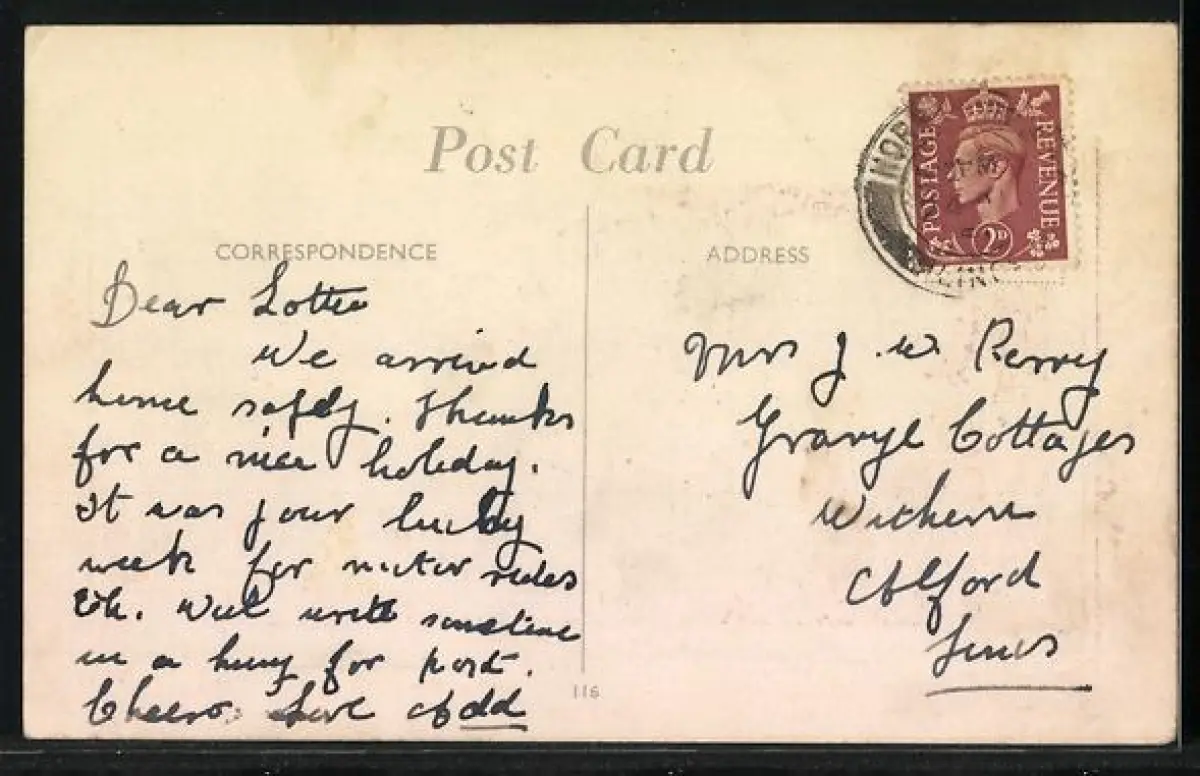 Post Card
CORRESPONDENCE
Dear Lottie
We arrived
home safely. Thanks
for a nice holiday.
It was your lucky
week for motor rides
Eh. Will write sometime
in a hurry for post.
Cheerio Love Add
116
ADDRESS
Mrs J. W. Perry
Cottages
Withern
Alford
Lincs
POSTAGE
REVENUE
2D